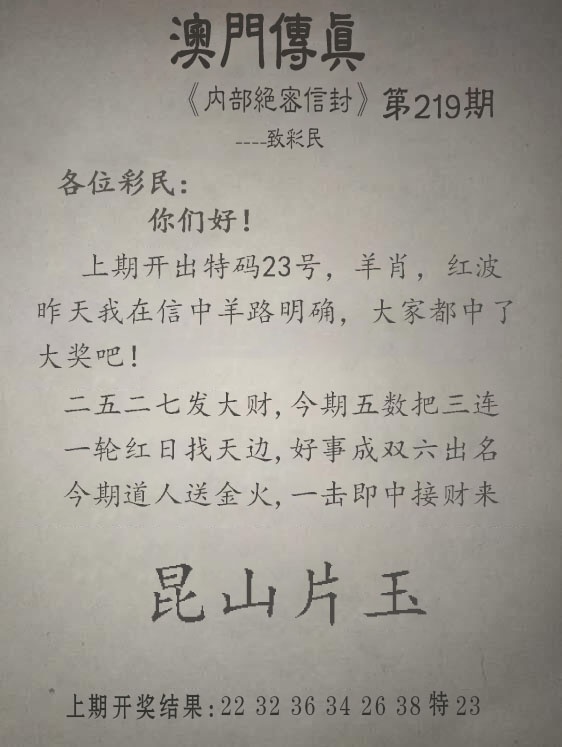 澳門傳真
《内部絕密信封》第219期
----致彩民
各位彩民：
你们好！
上期开出特码23号，羊肖，红波
昨天我在信中羊路明确，大家都中了
大奖吧！
二五二七发大财,今期五数把三连
一轮红日找天边,好事成双六出名
今期道人送金火,一击即中接财来
昆山片玉
上期开奖结果:22 32 36 34 26 38 特 23